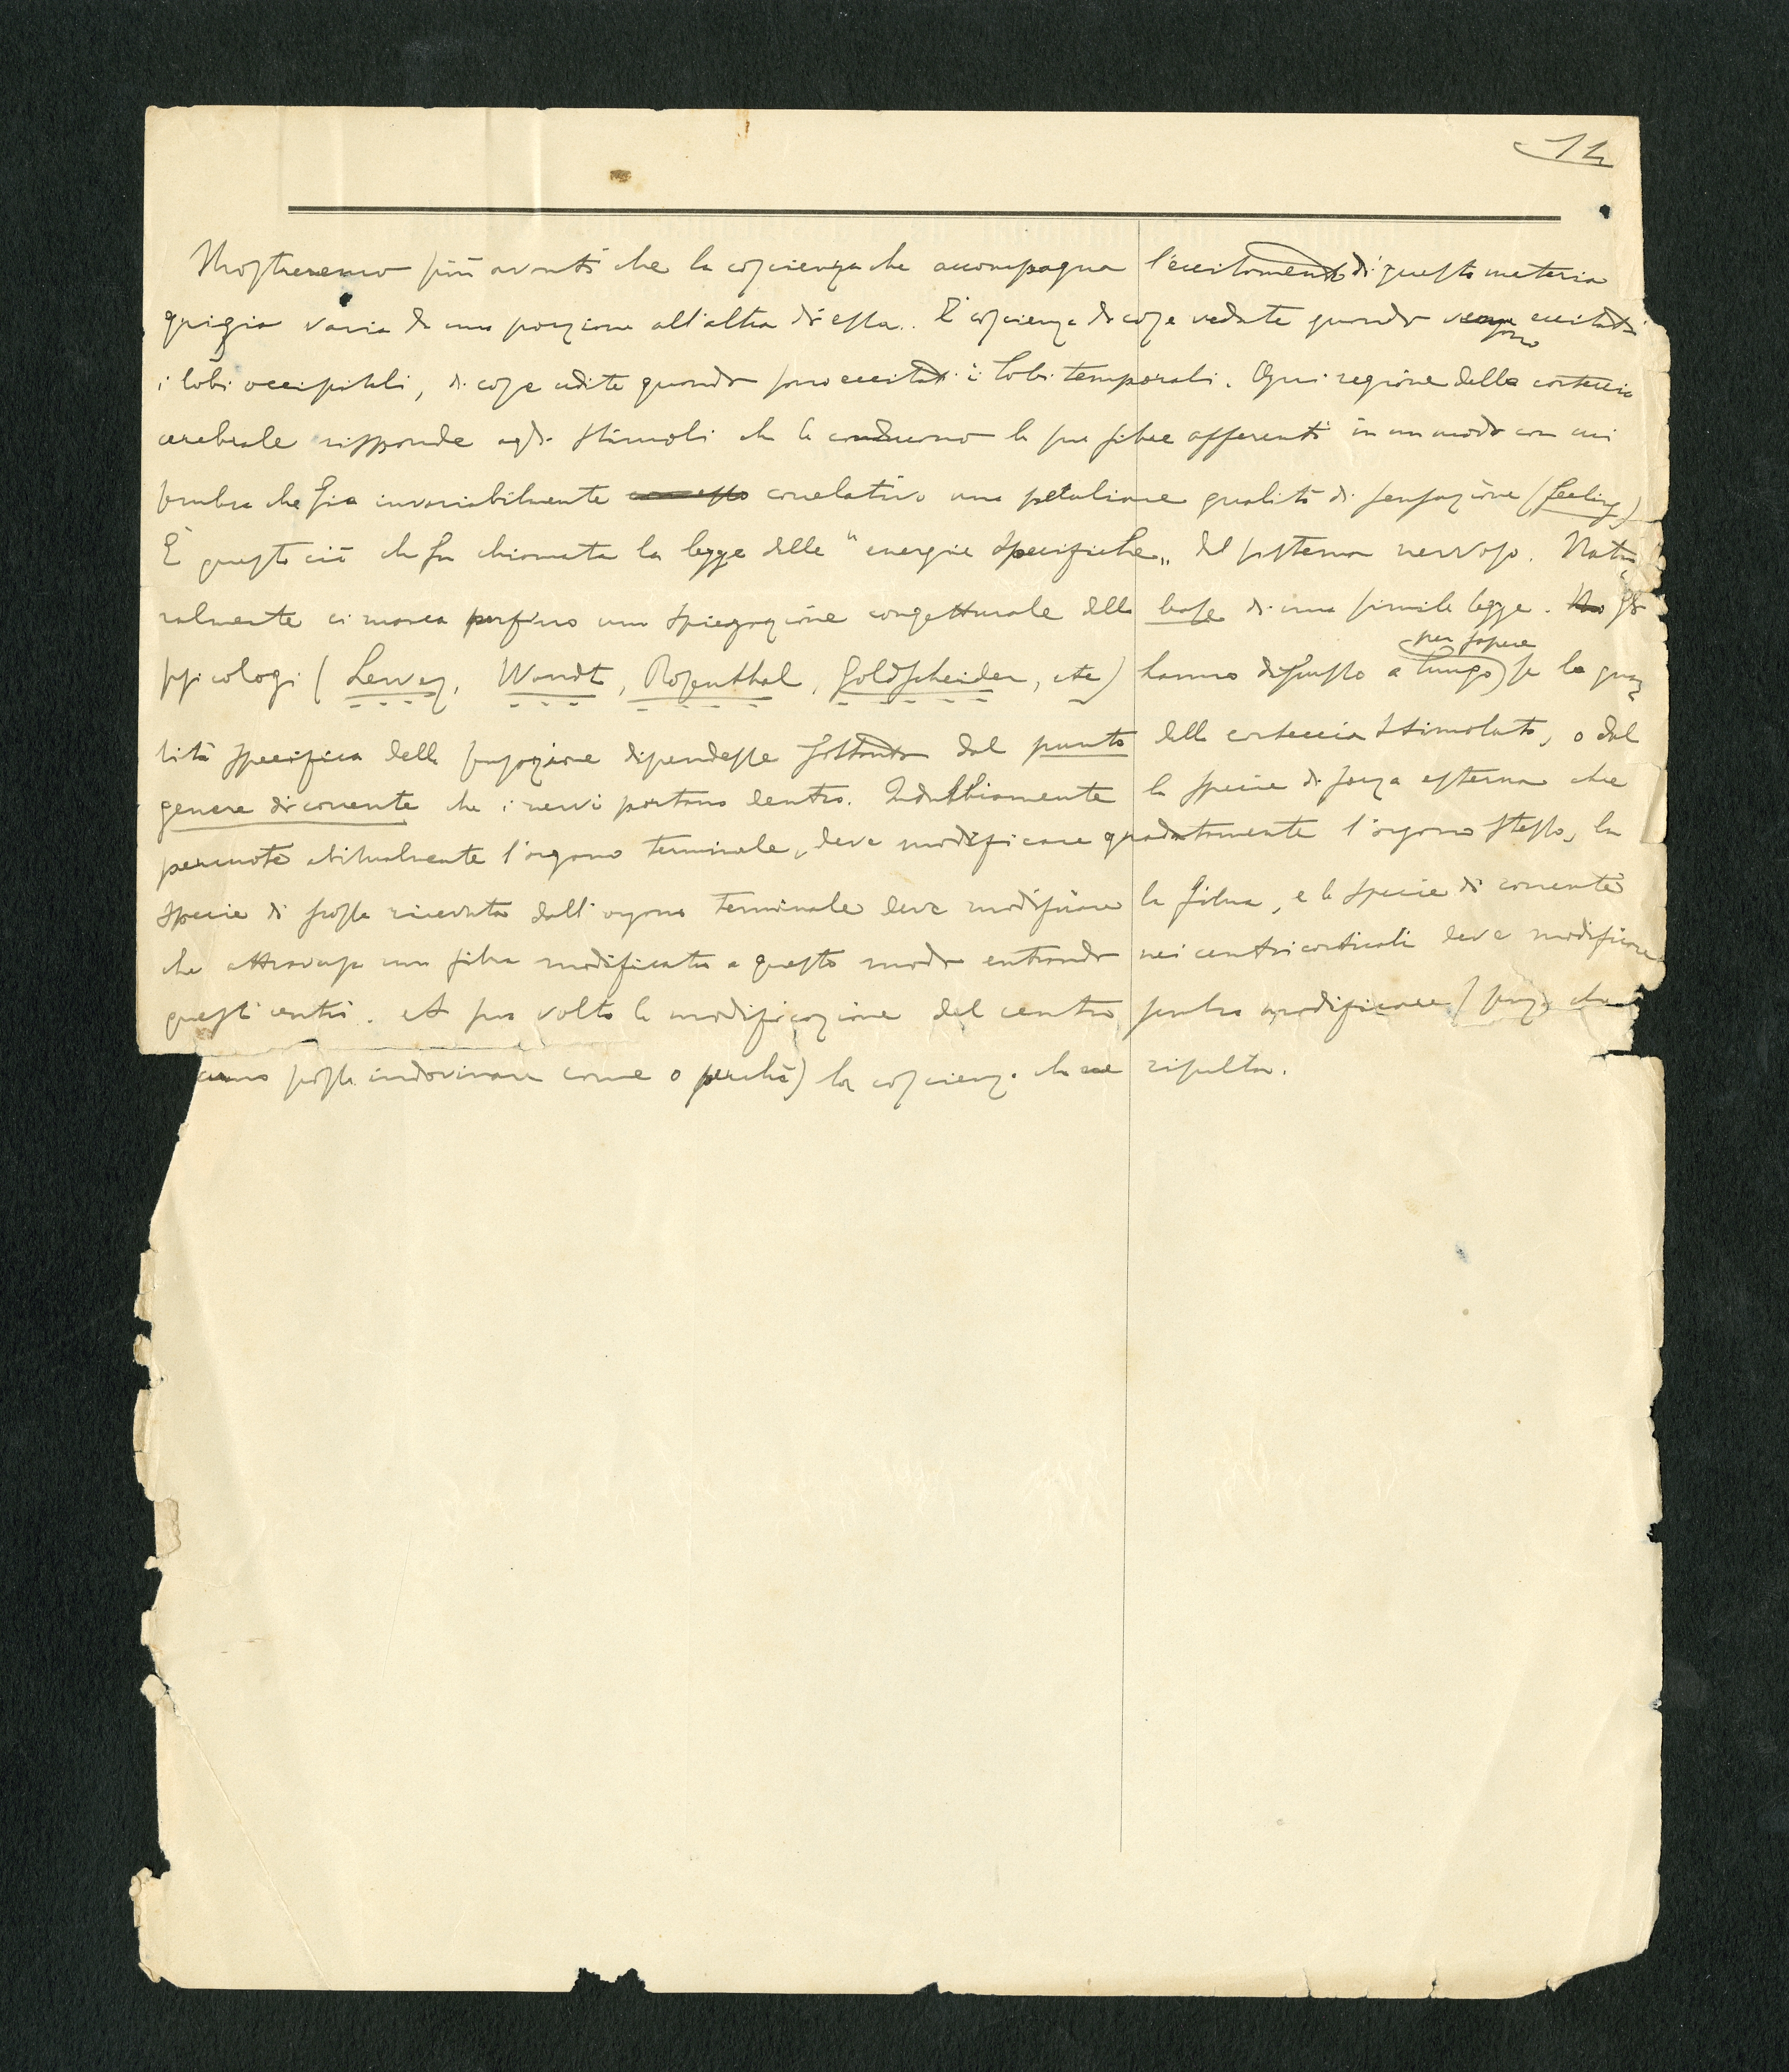 14
Mostreremo più avanti che la coscienza che accompagna l'eccitamento di questa materia
grigia varia da una porzione all'altra di essa. È coscienza di cose vedute quando vengono eccitati
i lobi occipitali, di cose udite quando sono eccitati i lobi temporali. Ogni regione della corteccia
cerebrale risponde agli stimoli che le conducono le sue fibre afferenti in un modo con cui
sembra che sia invariabilmente correlativo una peculiare qualità di sensazione (feeling)
È questo ciò che fu chiamata la legge delle "energie specifiche„ del sistema nervoso. Natu
ralmente ci manca perfino una spiegazione congetturale della base di una simile legge. Gli
psicologi (Lewes, Wundt, Rosenthal, Goldscheider, etc) hanno discusso a lungo per sapere se la qua
lità specifica della sensazione dipendesse soltanto dal punto della corteccia stimolato, o dal
genere di corrente che i nervi portano dentro. Indubbiamente la specie di forza esterna che
percuote abitualmente l'organo terminale, deve modificare gradatamente l'organo stesso, la
specie di scossa ricevuta dall'organo terminale deve modificare la fibra, e la specie di corrente
che attraversa una fibra modificata a questo modo entrando nei centri corticali deve modificare
questi centri. A sua volta la modificazione del centro sembra modificare (senza che
alcuno possa indovinare come o perchè) la coscienza che ne risulta.